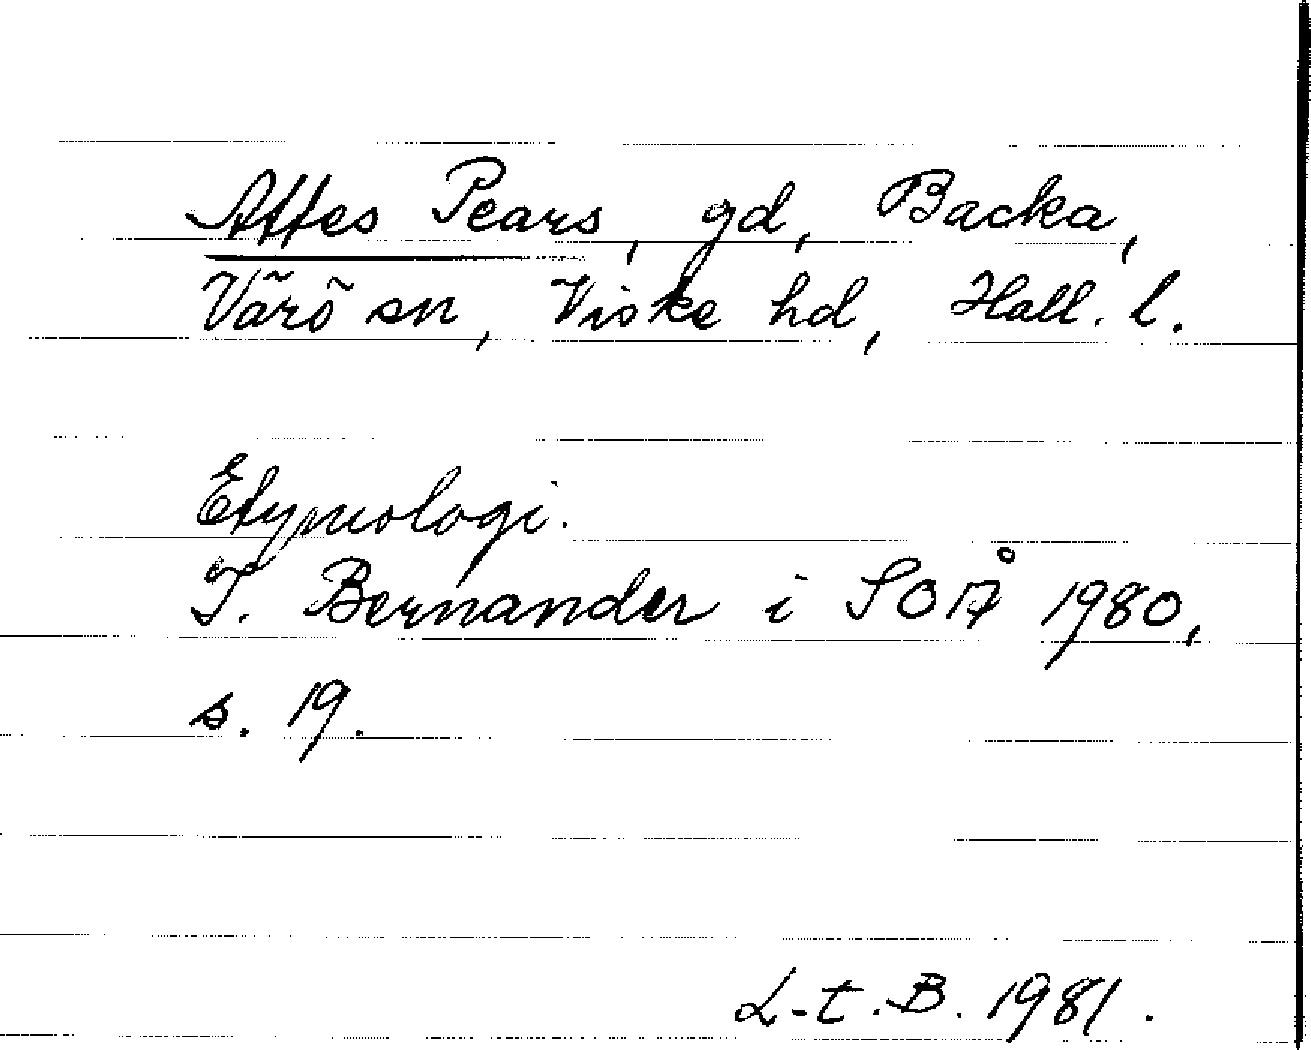 Attes Pears, gd, Backa,
Värö sn, Viske hd, Hall. l.
Etymologi.
T. Bernander i SOÅ 1980,
s. 19.
L-t. B. 1981.